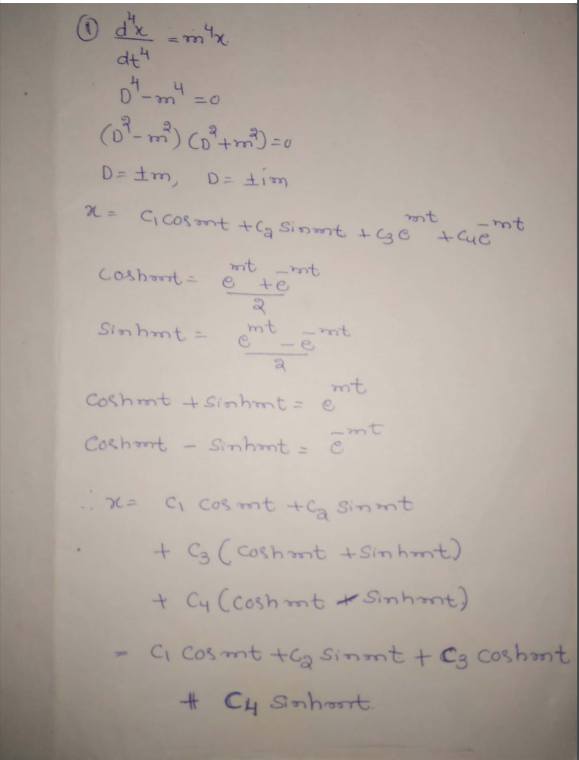 ① d⁴x/dt⁴ = m⁴x
D⁴ - m⁴ = 0
(D² - m²) (D² + m²) = 0
D = ±m, D = ±im
x = C₁ cos mt + C₂ sin mt + C₃ e^mt + C₄ e^-mt
Coshmt = (e^mt + e^-mt)/2
Sinhmt = (e^mt - e^-mt)/2
Coshmt + Sinhmt = e^mt
Coshmt - Sinhmt = e^-mt
∴ x = C₁ cos mt + C₂ sin mt
+ C₃ (Coshmt + Sinhmt)
+ C₄ (Coshmt - Sinhmt)
= C₁ cos mt + C₂ sin mt + C₃ coshmt
+ C₄ Sinhmt